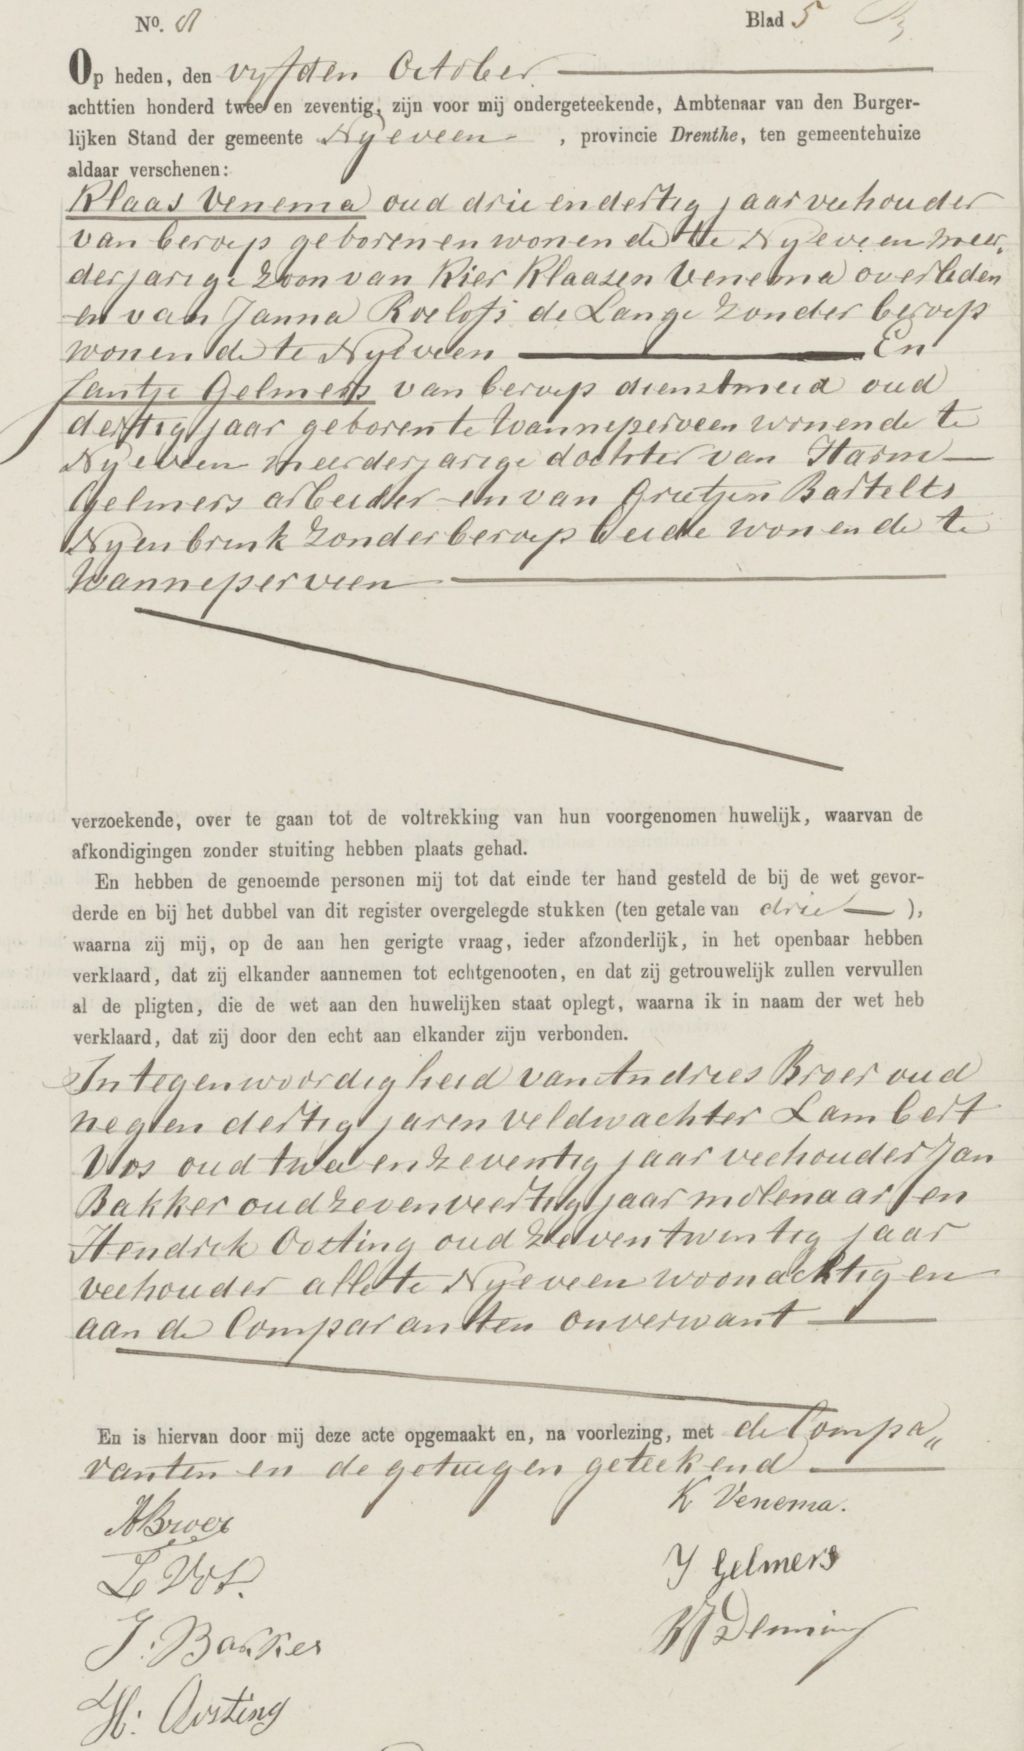 No. 8
Blad 5
Op heden, den vyfden October
achttien honderd twee en zeventig, zijn voor mij ondergeteekende, Ambtenaar van den Burger-
lijken Stand der gemeente Nyeveen, provincie Drenthe, ten gemeentehuize
aldaar verschenen:
Klaas Venema oud drie en dertig jaar veehouder
van beroep geboren en wonende te Nyeveen meer,
derjarige zoon van Kier Klaazen Venema overleden
en van Janna Roelofs de Lange zonder beroep
wonende te Nyeveen En
Jantje Gelmers van beroep dienstmeid oud
dertig jaar geboren te Wanneperveen wonende te
Nyeveen meerderjarige dochter van Harm
Gelmers arbeider en van Grietjen Bartelts
Nyenbrink zonder beroep beide wonende te
Wanneperveen
verzoekende, over te gaan tot de voltrekking van hun voorgenomen huwelijk, waarvan de
afkondigingen zonder stuiting hebben plaats gehad.
En hebben de genoemde personen mij tot dat einde ter hand gesteld de bij de wet gevor-
derde en bij het dubbel van dit register overgelegde stukken (ten getale van drie),
waarna zij mij, op de aan hen gerigte vraag, ieder afzonderlijk, in het openbaar hebben
verklaard, dat zij elkander aannemen tot echtgenooten, en dat zij getrouwelijk zullen vervullen
al de pligten, die de wet aan den huwelijken staat oplegt, waarna ik in naam der wet heb
verklaard, dat zij door den echt aan elkander zijn verbonden.
In tegenwoordigheid van Andries Broer oud
negen dertig jaren veldwachter Lambert
Vos oud twee en zeventig jaar veehouder Jan
Bakker oud zevenveertig jaar molenaar en
Hendrik Oosting oud zeventwintig jaar
veehouder alle te Nyeveen woonachtig en
aan de Comparanten onverwant
En is hiervan door mij deze acte opgemaakt en, na voorlezing, met de Compa„
ranten en de getuigen geteekend
K Venema.
A Broer
J Gelmers
L Vos.
J. Bakker
H: Oosting